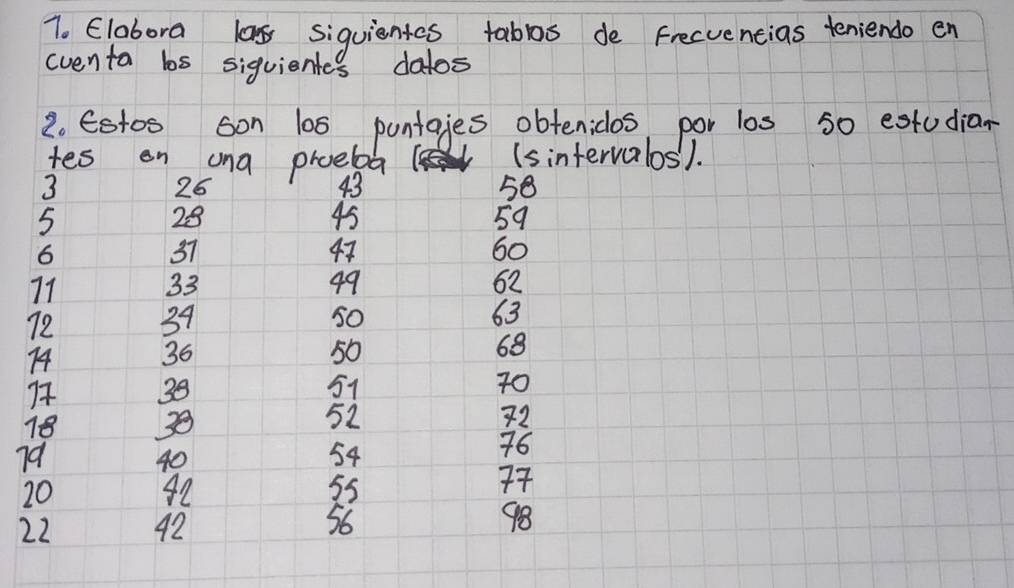 1. Elabora las siguientes tablas de Frecuencias teniendo en
cuenta los siguientes datos
2. Estos son los puntajes obtenidos por los 50 estudian
tes en una prueba (5 intervalos).
3 26 43 58
5 28 45 59
6 31 47 60
11 33 49 62
12 34 50 63
14 36 50 68
17 38 51 70
18 38 52 72
19 40 54 76
20 42 55 77
22 42 56 98